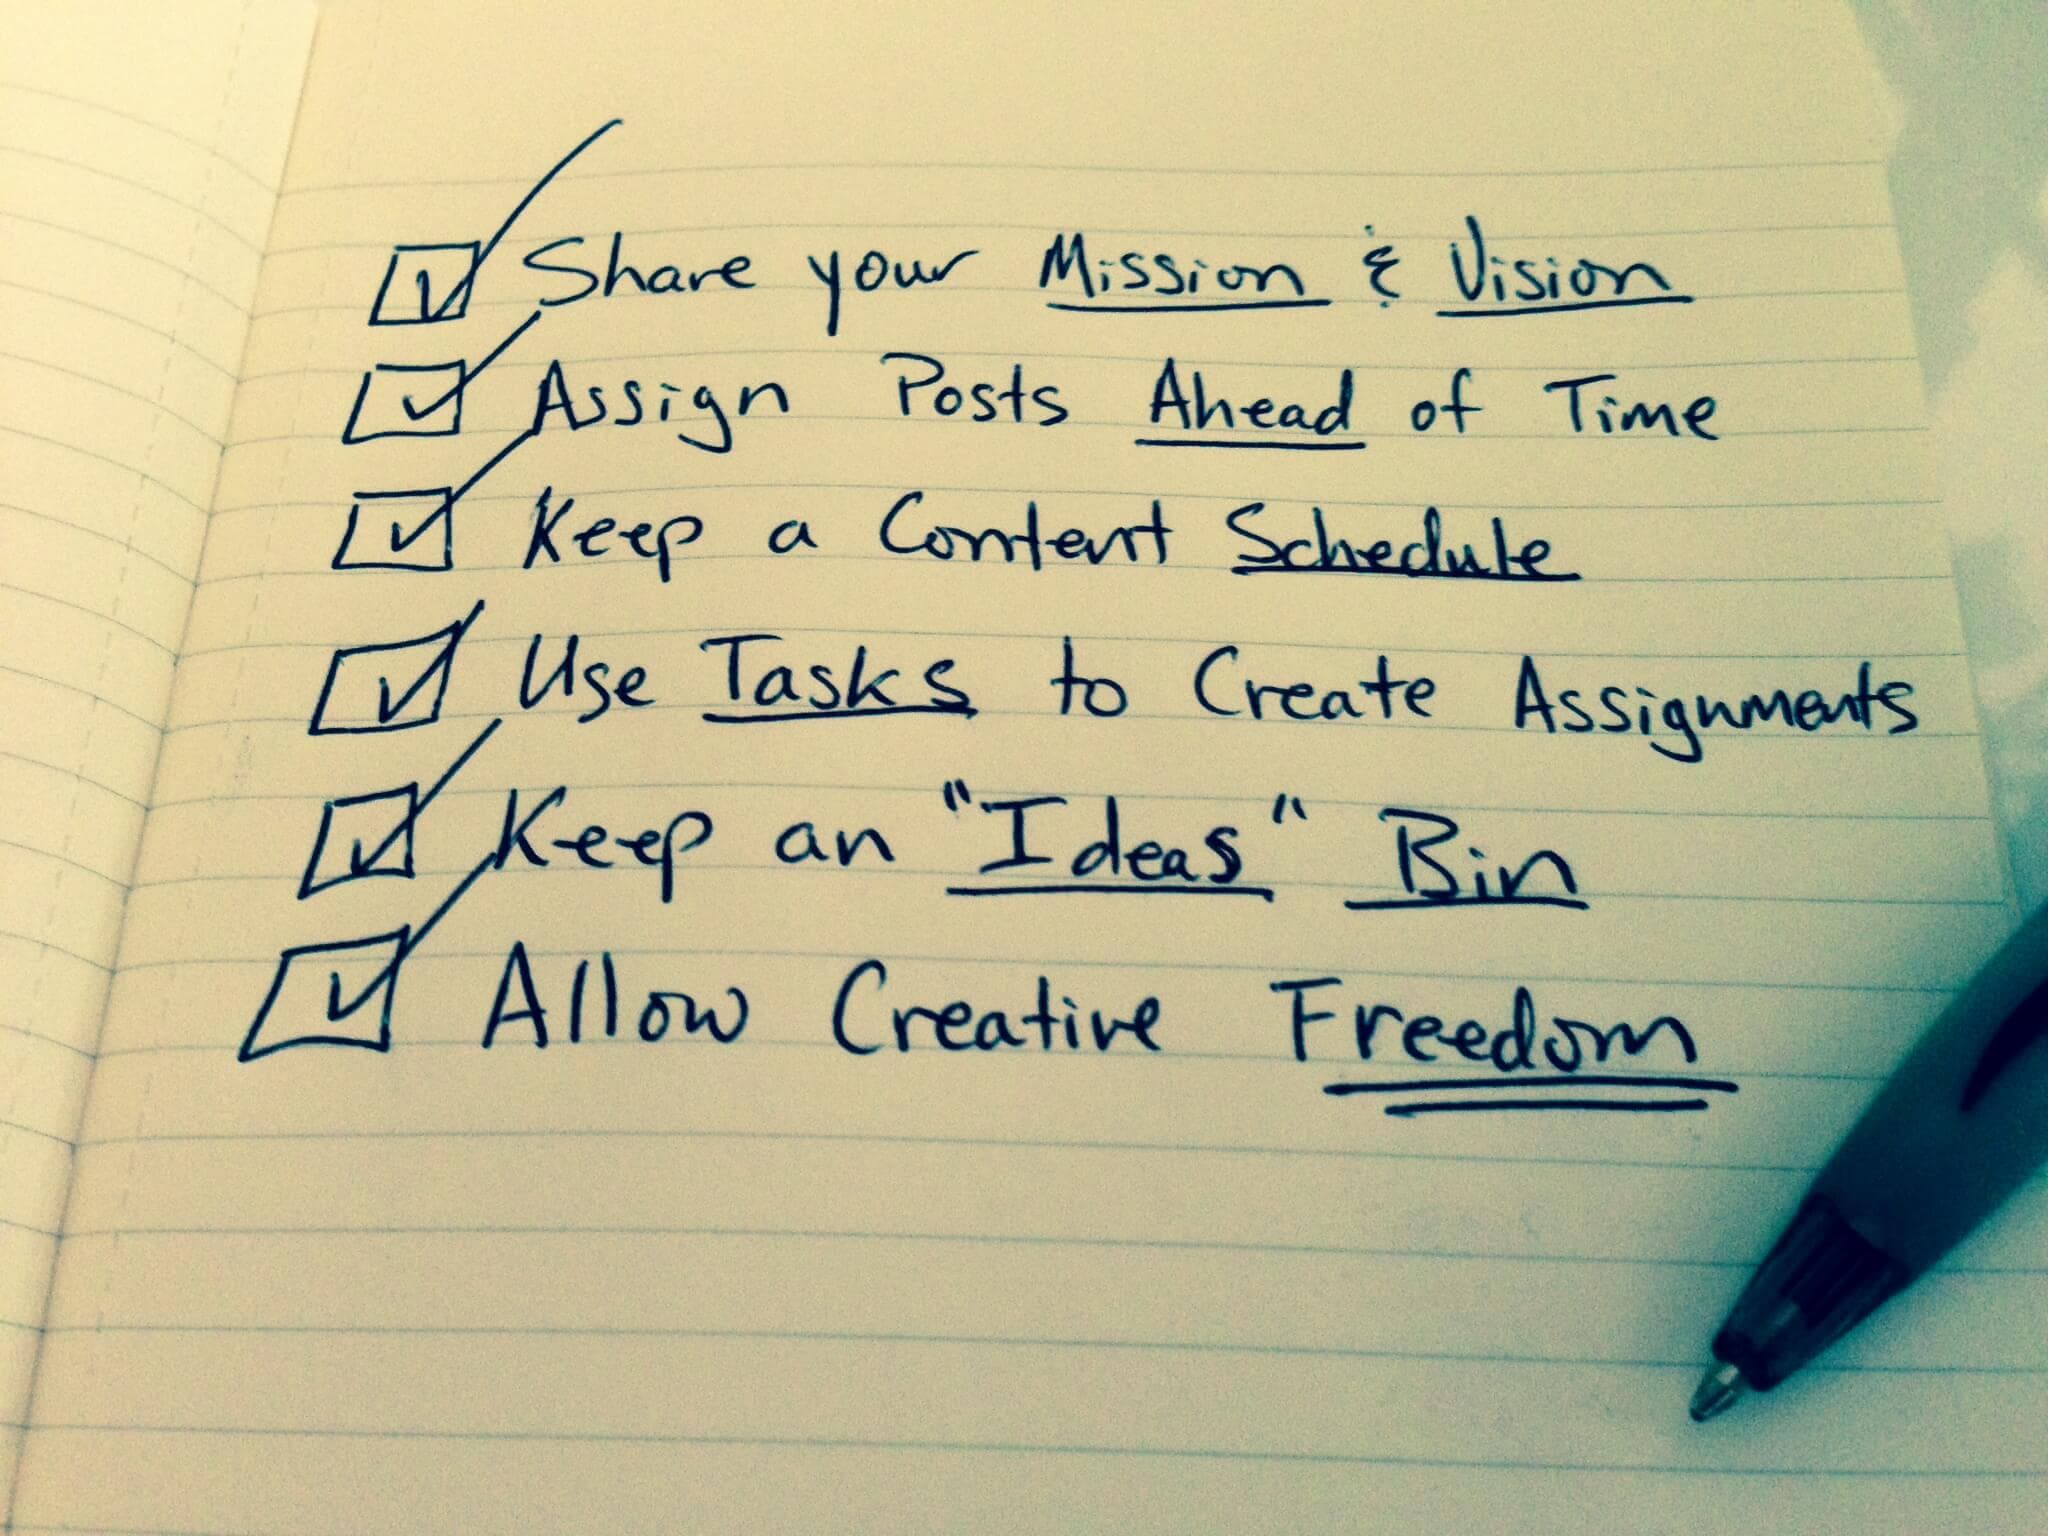 Share your Mission & Vision
Assign Posts Ahead of Time
Keep a Content Schedule
Use Tasks to Create Assignments
Keep an "Ideas" Bin
Allow Creative Freedom